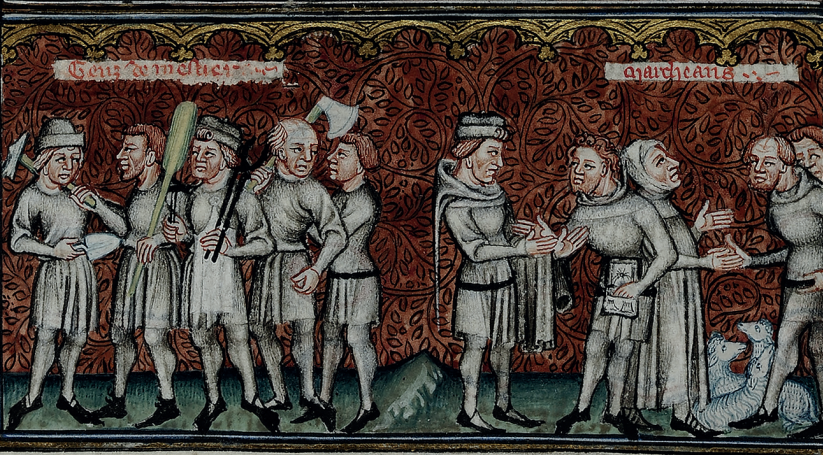 Genz de mestier
marcheans